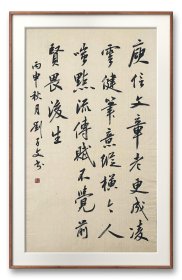 庾信文章老更成凌
雲健筆意縱橫今人
嗤點流傳賦不覺前
賢畏後生
丙申秋月劉文书